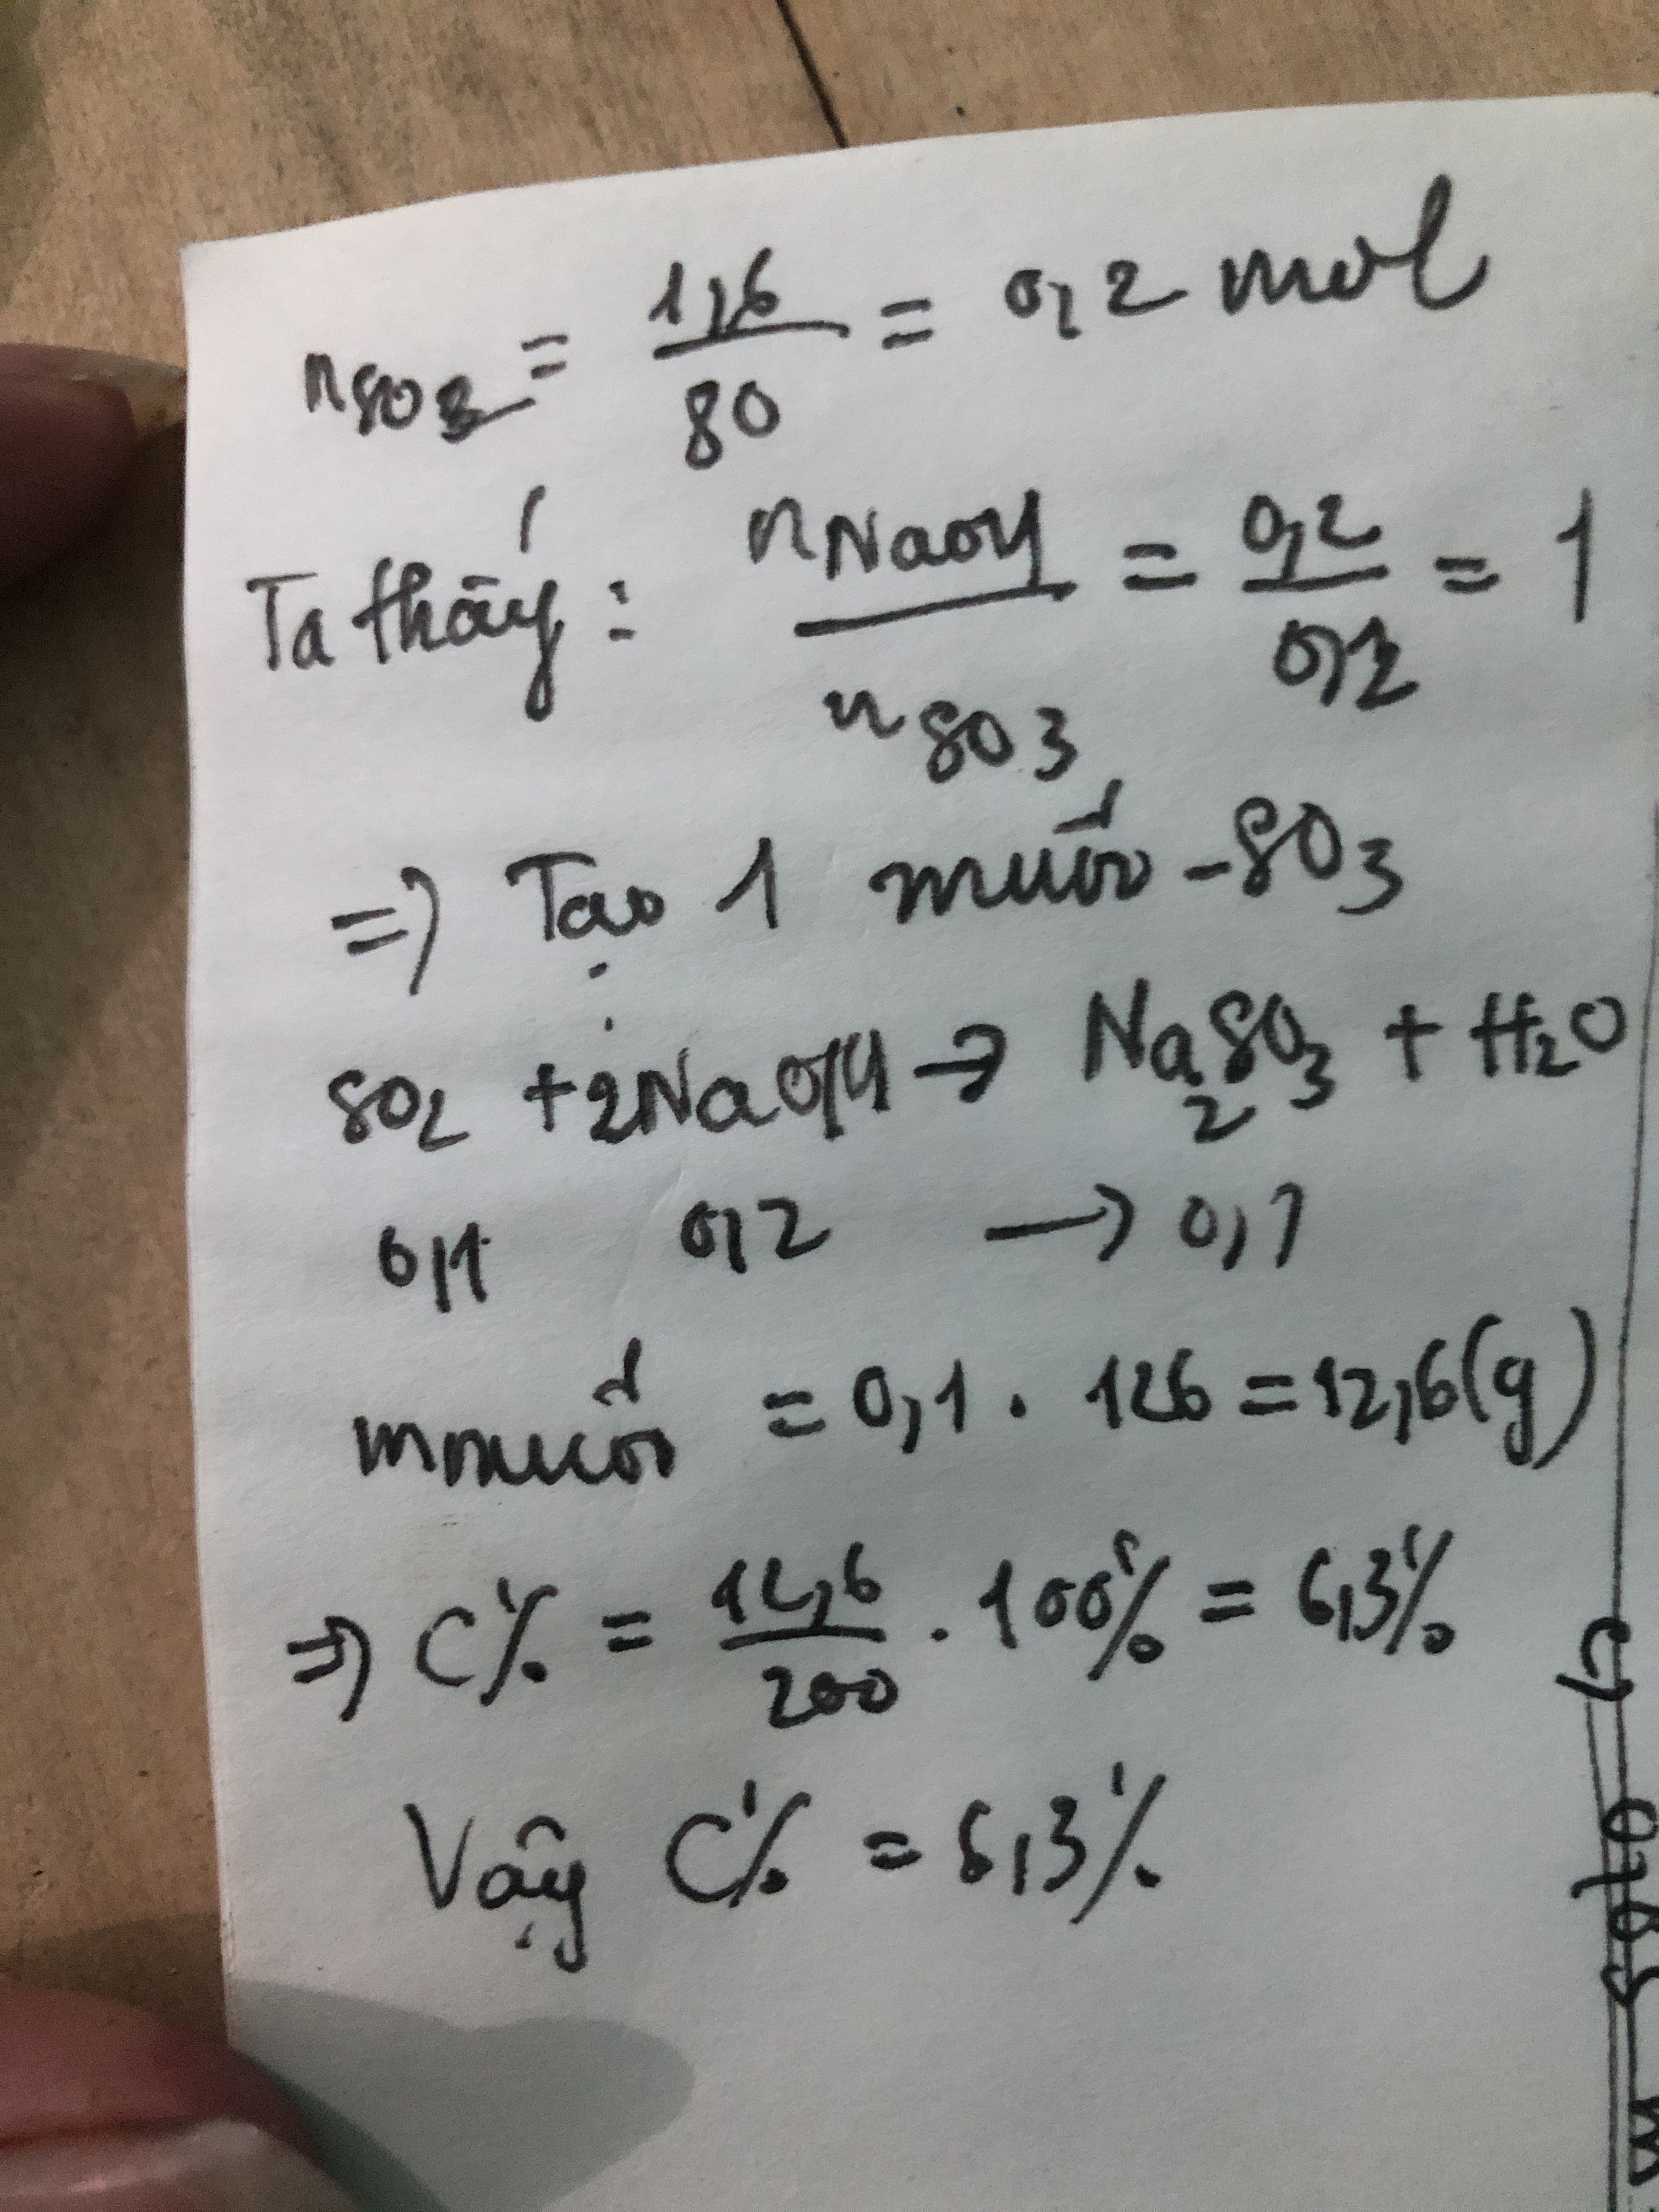 nSO3 = 1,6/80 = 0,2 mol
Ta thấy: nNaOH/nSO3 = 0,2/0,2 = 1
=> Tạo 1 muối -SO3
SO2 + 2NaOH → Na2SO3 + H2O
0,1 0,2 → 0,1
mmuối = 0,1 . 126 = 12,6(g)
=> C% = 12,6/200 . 100% = 6,3%
Vậy C% = 6,3%